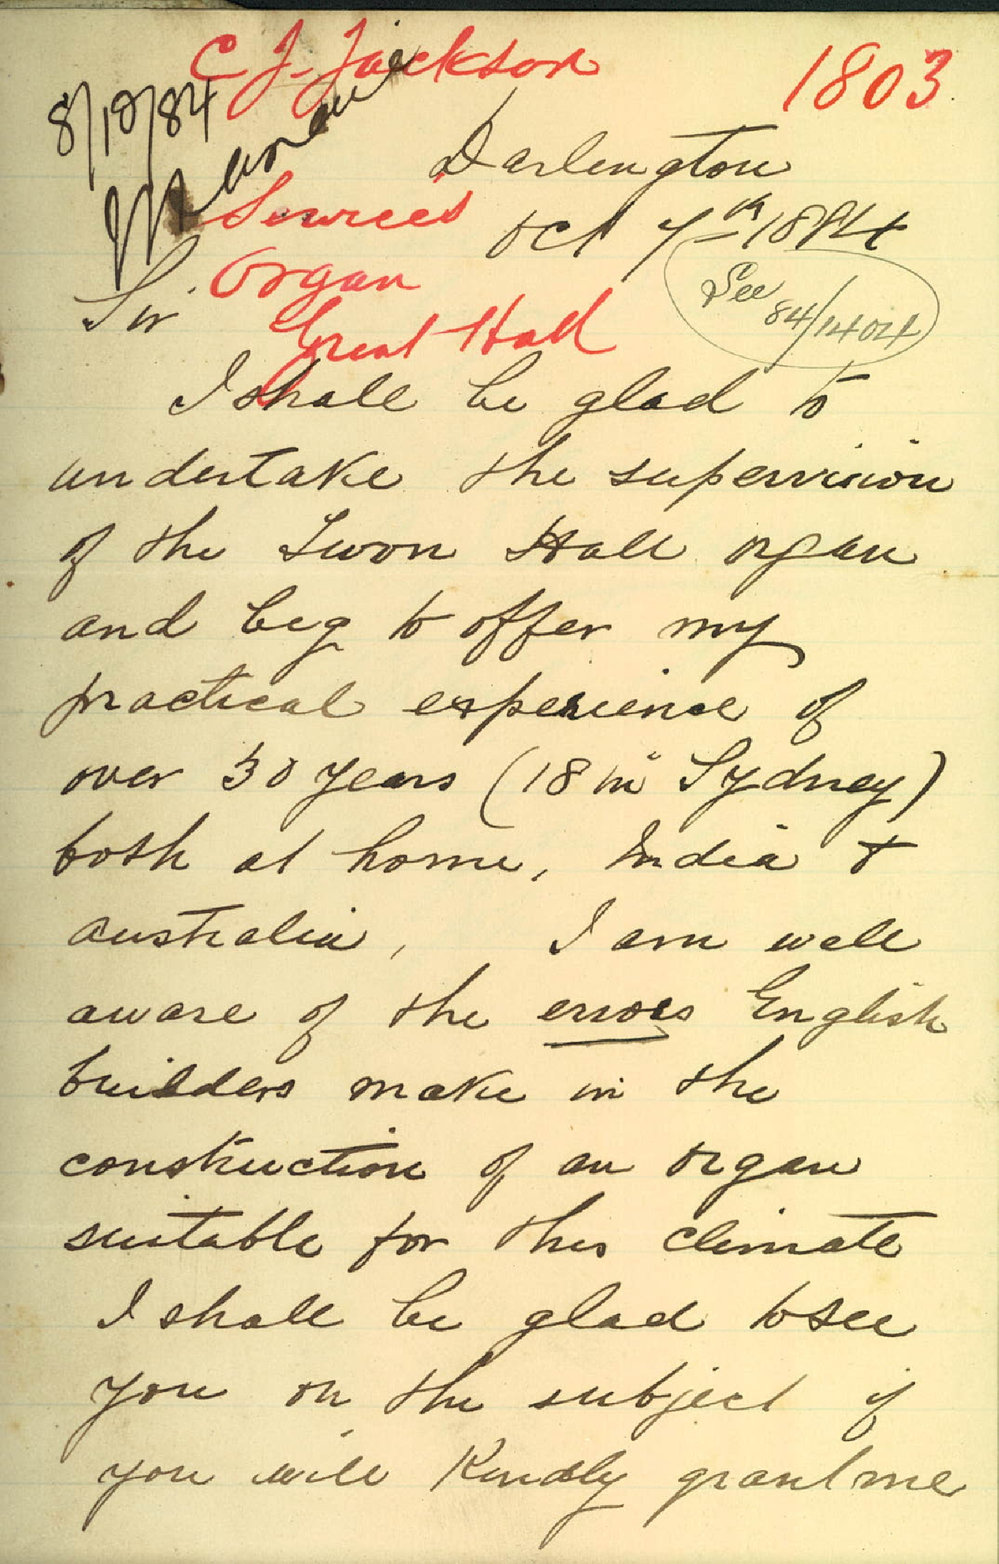 C J. Jackson
1803
8/10/84
Darlington
Services
Oct 7th 1884
Organ
See
84/1404
Sir
Great Hall
I shall be glad to
undertake the supervision
of the Town Hall organ
and beg to offer my
practical experience of
over 30 years (18 in Sydney)
both at home, India &
Australia, I am well
aware of the errors English
builders make in the
construction of an organ
suitable for this climate
I shall be glad to see
you on the subject if
you will Kindly grant me